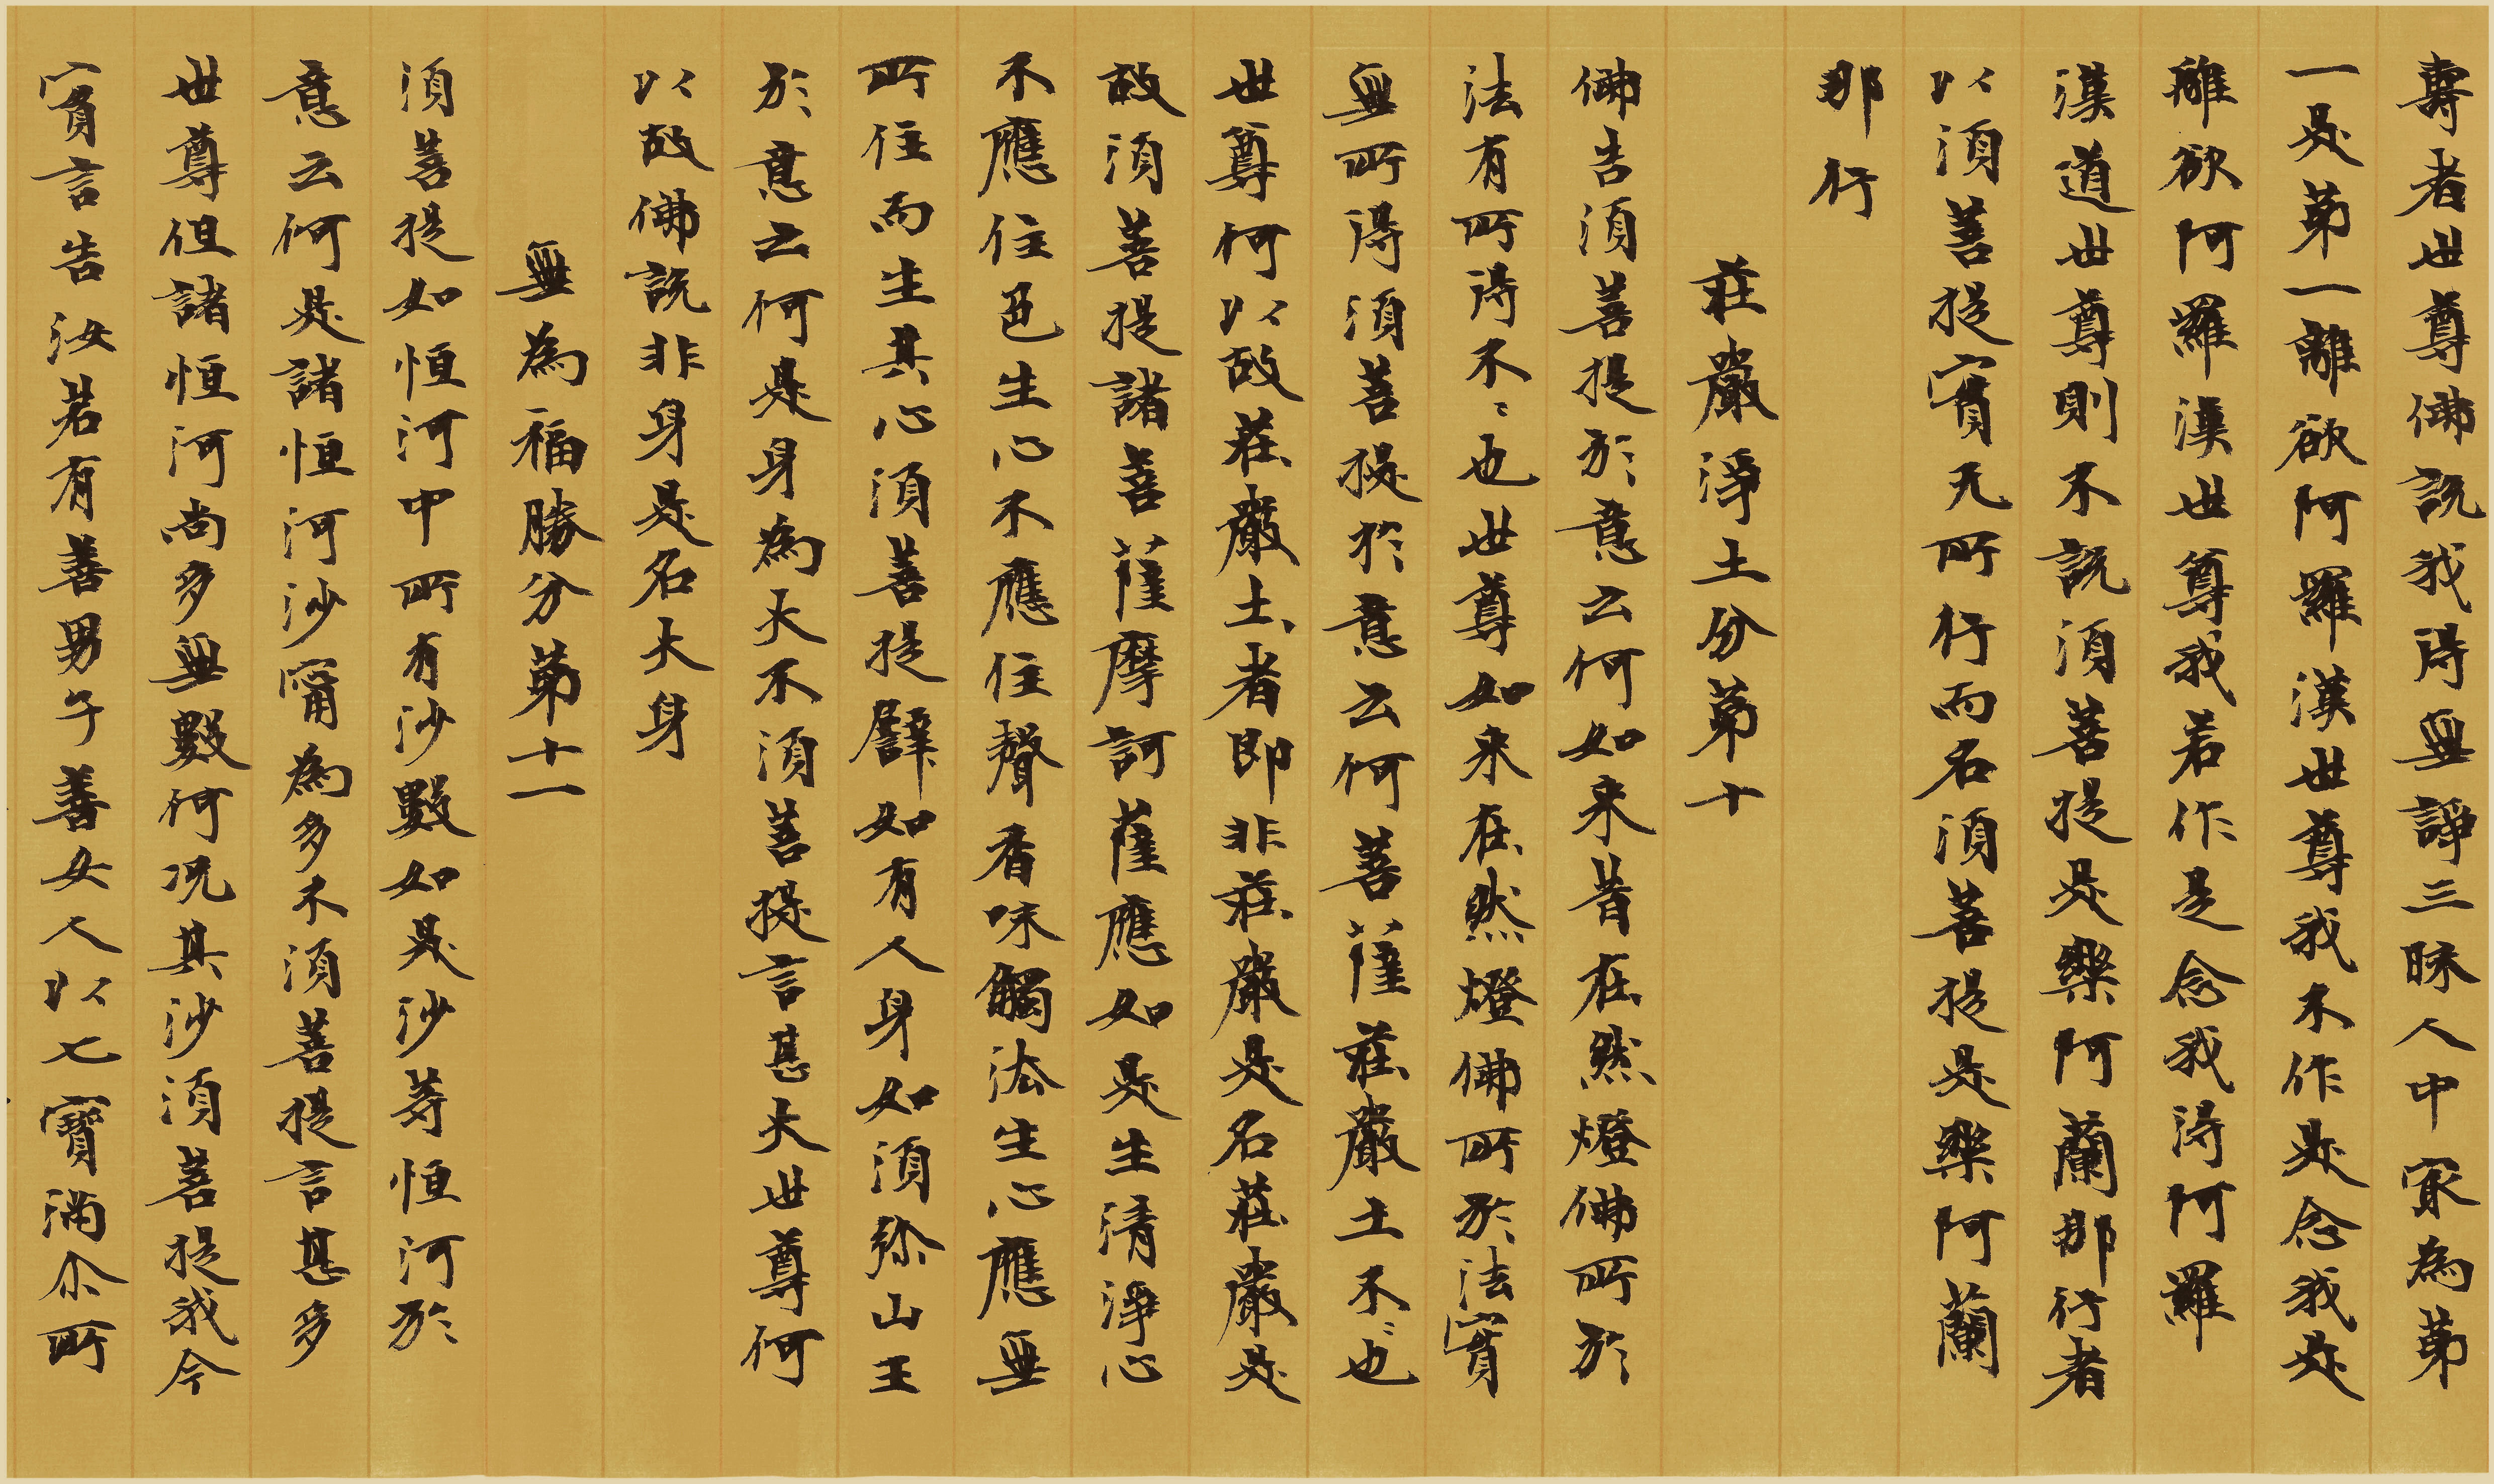 壽者世尊佛說我得無諍三昧人中冣為苐
一是苐一離欲阿羅漢世尊我不作是念我是
離欲阿羅漢世尊我若作是念我得阿羅
漢道世尊則不說須菩提是樂阿蘭那行者
以須菩提實无所行而名須菩提是樂阿蘭
那行
莊嚴淨土分苐十
佛告須菩提於意云何如來昔在然燈佛所於
法有所得不〻也世尊如來在然燈佛所於法實
無所得須菩提於意云何菩薩莊嚴土不〻也
世尊何以故莊嚴土者即非莊嚴是名莊嚴是
故須菩提諸菩薩摩訶薩應如是生清淨心
不應住色生心不應住聲香味觸法生心應無
所住而生其心須菩提譬如有人身如須弥山王
於意云何是身為大不須菩提言甚大世尊何
以故佛說非身是名大身
無為福勝分苐十一
須菩提如恒河中所有沙數如是沙等恒河於
意云何是諸恒河沙寧為多不須菩提言甚多
世尊但諸恒河尚多無數何况其沙須菩提我今
實言告汝若有善男子善女人以七寶滿尒所